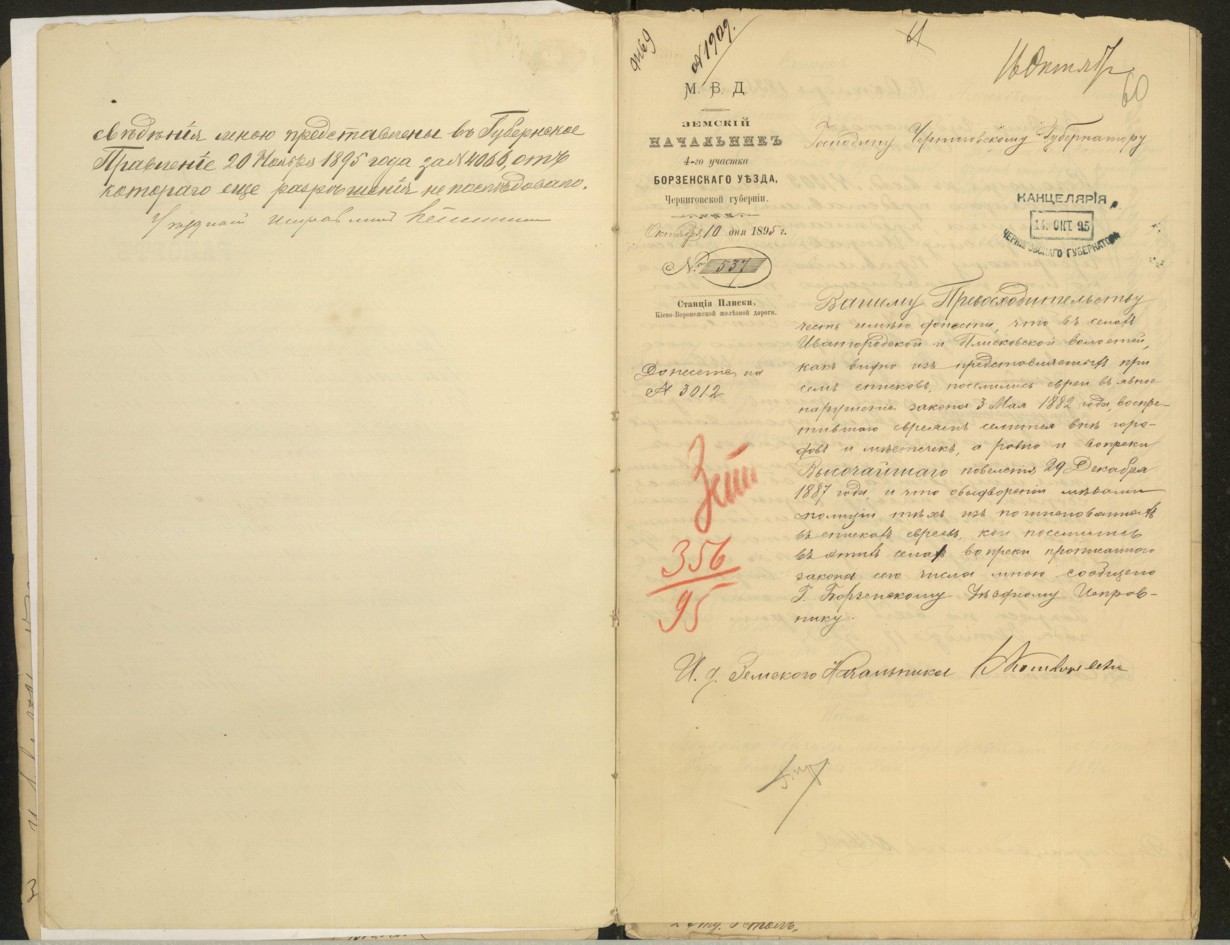 свѣдѣнія мною представлены въ Губернское
Правленіе 20 Ноября 1895 года за № 4088, отъ
котораго еще разрѣшенія не послѣдовало.
Уѣздный исправникъ
№ 1909.
16 Октября
60
М. В. Д
ЗЕМСКІЙ
НАЧАЛЬНИКЪ
4-го участка
БОРЗЕНСКАГО УѢЗДА,
Черниговской губерніи.
Октября 10 дня 1895 г.
№ 537
Станція Плиски,
Кіево-Воронежской желѣзной дороги.
Донесеніе на
№ 3012
Господину Черниговскому Губернатору
КАНЦЕЛЯРІЯ
14 ОКТ. 95
ЧЕРНИГОВСКАГО ГУБЕРНАТОРА
Вашему Превосходительству
честь имѣю донести, что въ селахъ
Ивангородской и Плисковской волостей,
какъ видно изъ представляемыхъ при
семъ списковъ, поселились евреи въ явное
нарушеніе закона 3 Мая 1882 года, воспре-
тившаго евреямъ селиться внѣ горо-
довъ и мѣстечекъ, а равно и вопреки
Высочайшаго повелѣнія 29 Декабря
1887 года, и что о выдвореніи мѣрами
полиціи тѣхъ изъ поименованныхъ
въ спискахъ евреевъ, кои поселились
въ этихъ селахъ вопреки прописаннаго
закона сего числа мною сообщено
Г. Борзенскому Уѣздному Исправ-
нику.
356
95
И. д. Земского Начальника